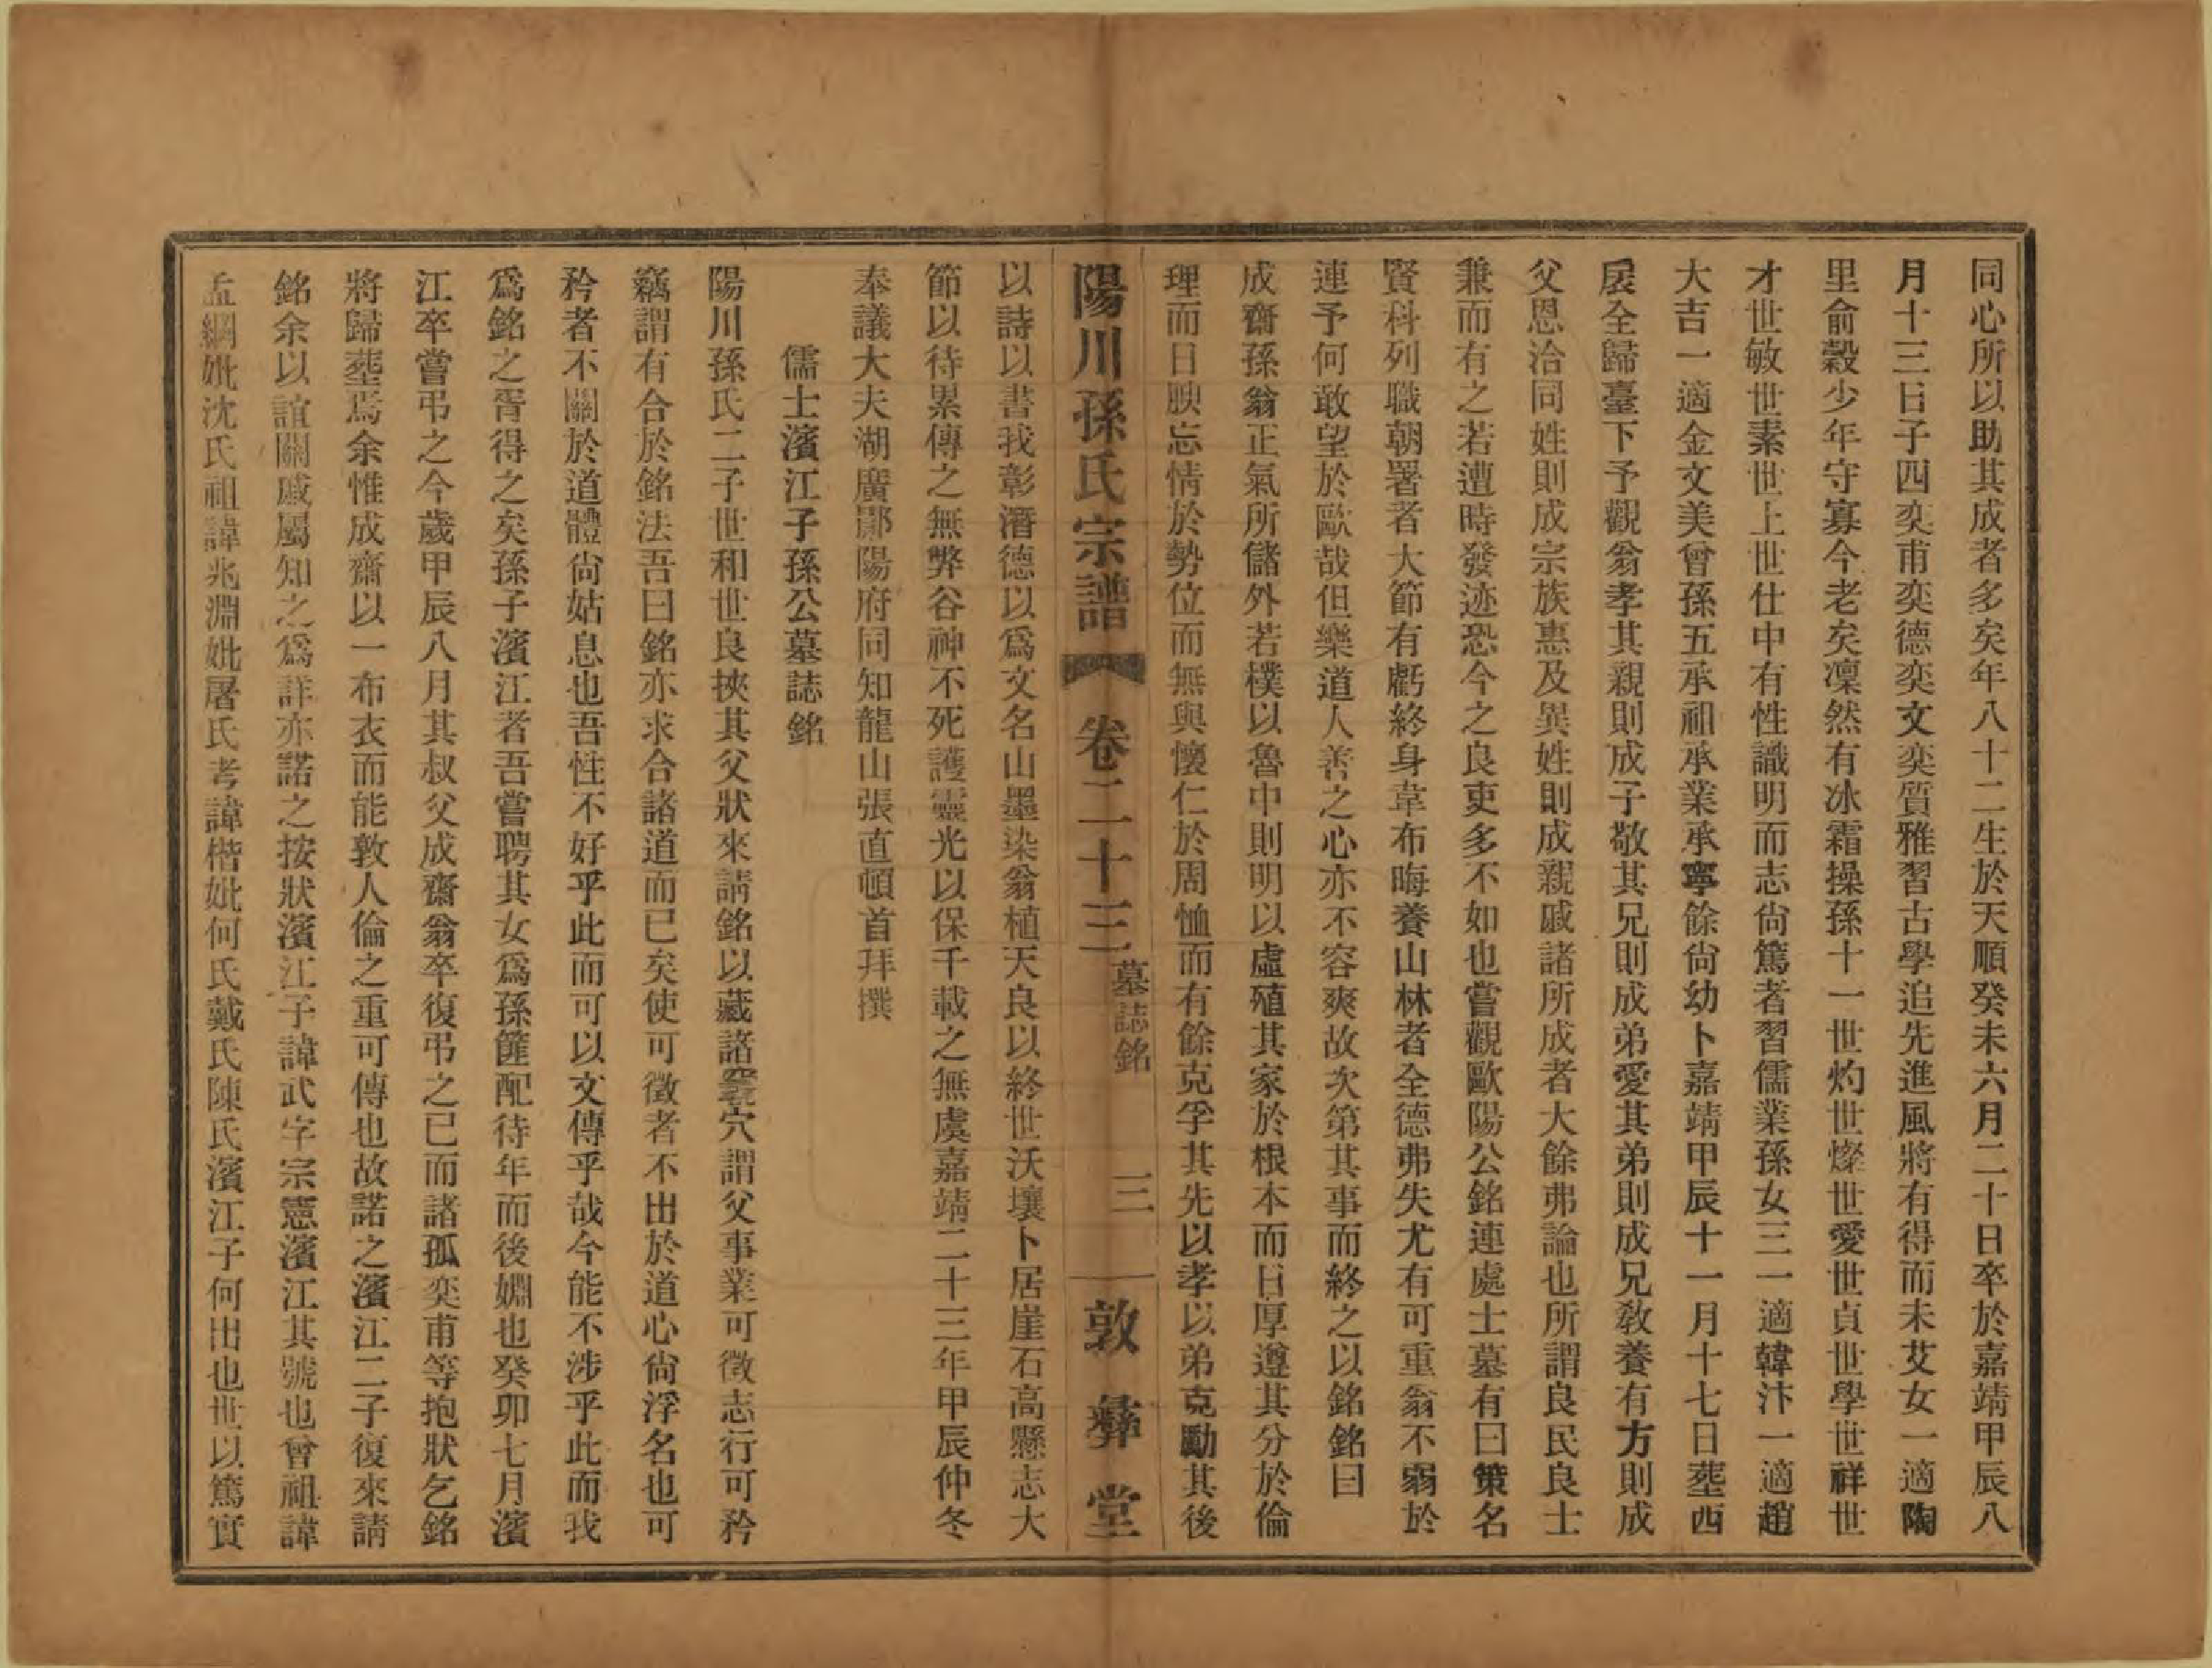 同心所以助其成者多矣年八十二生於天順癸未六月二十日卒於嘉靖甲辰八
月十三日子四奕甫奕德奕文奕質雅習古學追先進風將有得而未艾女一適陶
里俞穀少年守寡今老矣凜然有冰霜操孫十一世灼世燦世愛世貞世學世祥世
才世敏世素世上世仕中有性識明而志尙篤者習儒業孫女三一適韓汴一適趙
大吉一適金文美曾孫五承祖承業承寧餘尙幼卜嘉靖甲辰十一月十七日葬西
扆全歸臺下予觀翁孝其親則成子敬其兄則成弟愛其弟則成兄敎養有方則成
父恩洽同姓則成宗族惠及異姓則成親戚諸所成者大餘弗論也所謂良民良士
兼而有之若遭時發迹恐今之良吏多不如也嘗觀歐陽公銘連處士墓有曰策名
賢科列職朝署者大節有虧終身韋布晦養山林者全德弗失尤有可重翁不弱於
連予何敢望於歐哉但樂道人善之心亦不容爽故次第其事而終之以銘銘曰
成齋孫翁正氣所儲外若樸以魯中則明以虛殖其家於根本而日厚遵其分於倫
理而日腴忘情於勢位而無與懷仁於周恤而有餘克孚其先以孝以弟克勵其後
陽川孫氏宗譜 卷二十三 墓誌銘 三 敦彝堂
以詩以書我彰潛德以爲文名山墨染翁植天良以終世沃壤卜居崖石高懸志大
節以待累傳之無弊谷神不死護靈光以保千載之無虞嘉靖二十三年甲辰仲冬
奉議大夫湖廣鄖陽府同知龍山張直頓首拜撰
儒士濱江子孫公墓誌銘
陽川孫氏二子世和世良挾其父狀來請銘以藏諸窀穴謂父事業可徵志行可矜
竊謂有合於銘法吾曰銘亦求合諸道而已矣使可徵者不出於道心尙浮名也可
矜者不關於道體尙姑息也吾性不好乎此而可以文傳乎哉今能不涉乎此而我
爲銘之胥得之矣孫子濱江者吾嘗聘其女爲孫篚配待年而後婣也癸卯七月濱
江卒嘗弔之今歲甲辰八月其叔父成齋翁卒復弔之已而諸孤奕甫等抱狀乞銘
將歸塟焉余惟成齋以一布衣而能敦人倫之重可傳也故諾之濱江二子復來請
銘余以誼關戚屬知之爲詳亦諾之按狀濱江子諱武字宗憲濱江其號也曾祖諱
孟綱妣沈氏祖諱兆淵妣屠氏考諱楷妣何氏戴氏陳氏濱江子何出也世以篤實